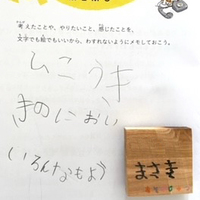 考えたことや、やりたいこと、感じたことを、
文字でも絵でもいいから、わすれないようにメモしておこう。
ひこうキ
きのにおい
いろんなもよう
まさき